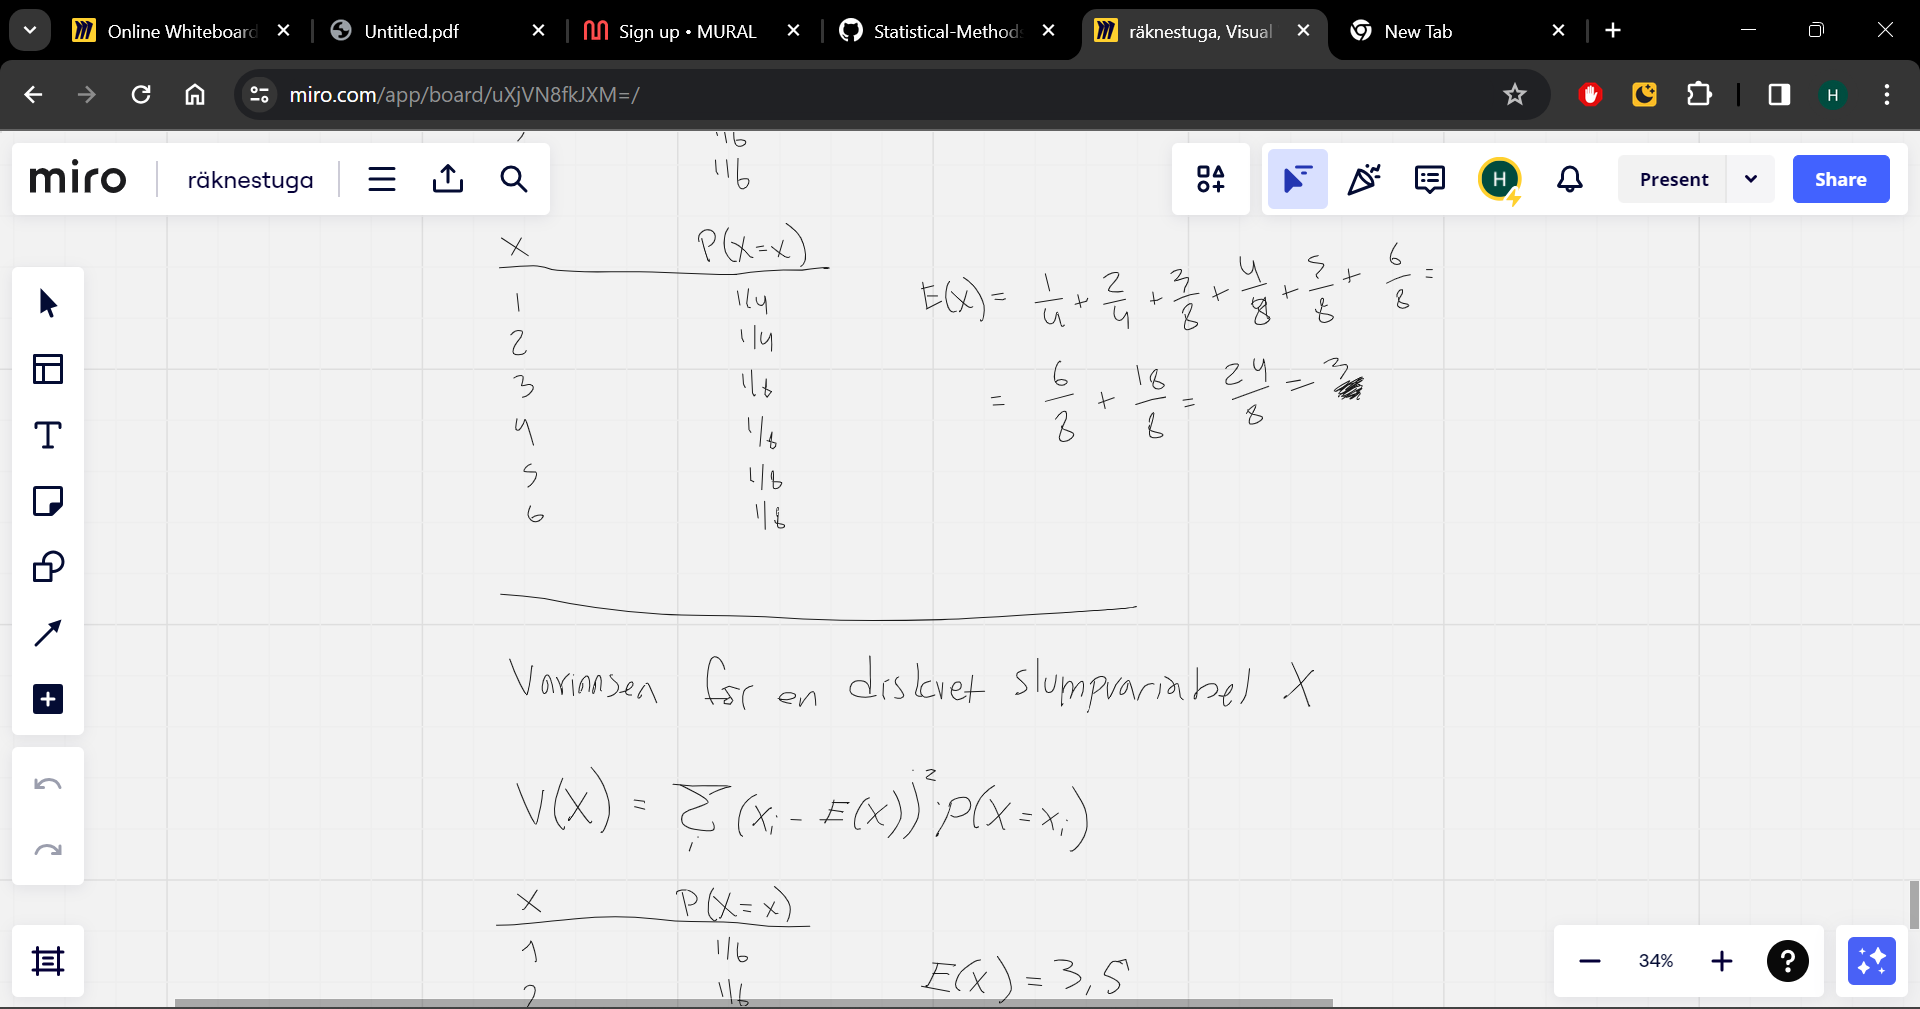 Online Whiteboard
Untitled.pdf
Sign up • MURAL
Statistical-Methods
räknestuga, Visual
New Tab
miro.com/app/board/uXjVN8fkJXM=/
H
miro
räknestuga
H
Present
Share
1/6
1/6
X P(X=x)
1 1/4
2 1/4
3 1/8
4 1/8
5 1/8
6 1/8
E(X) = 1/4 + 2/4 + 3/8 + 4/8 + 5/8 + 6/8 =
= 6/8 + 18/8 = 24/8 = 3
Variansen för en diskret slumpvariabel X
V(X) = Σi (xi - E(X))²·P(X=xi)
X P(X=x)
1 1/6
2 1/6
E(X) = 3,5
34%